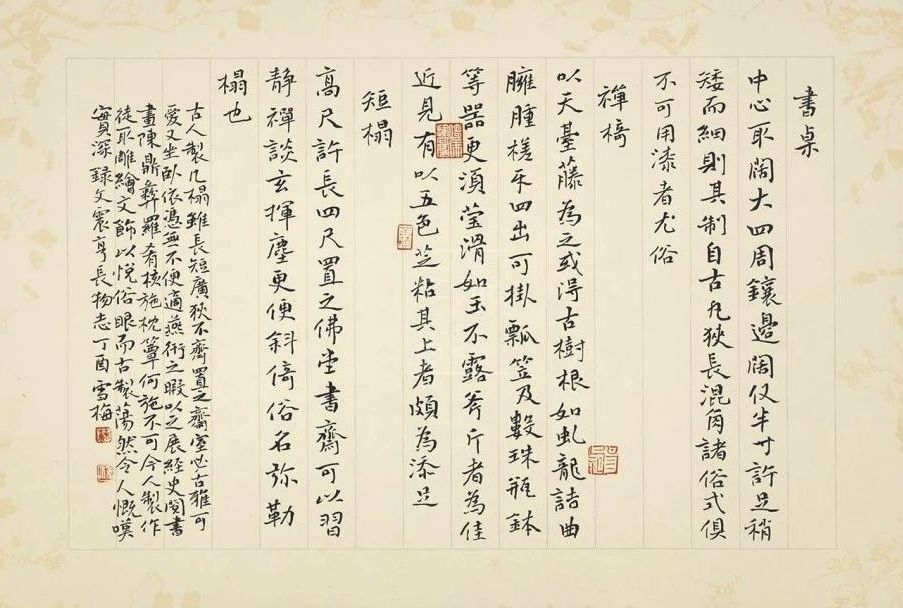 書桌
中心取闊大四周鑲邊闊仅半寸許足稍
矮而細則其制自古凡狹長混角諸俗式俱
不可用漆者尤俗
禪椅
以天臺藤為之或得古樹根如虬龍詰曲
臃腫槎牙四出可掛瓢笠及數珠瓶鉢
等器更須瑩滑如玉不露斧斤者為佳
近見有以五色芝粘其上者頗為添足
短榻
高尺許長四尺置之佛堂書齋可以習
靜禪談玄揮塵更便斜倚俗名弥勒
榻也
古人製几榻雖長短廣狹不齊置之齋室必古雅可
愛又坐卧依憑無不便適燕衎之暇以之展經史閱書
畫陳鼎彝羅肴核施枕簟何施不可今人製作
徒取雕繪文飾以悅俗眼而古製蕩然令人慨嘆
實深錄文震亨長物志丁酉雪梅